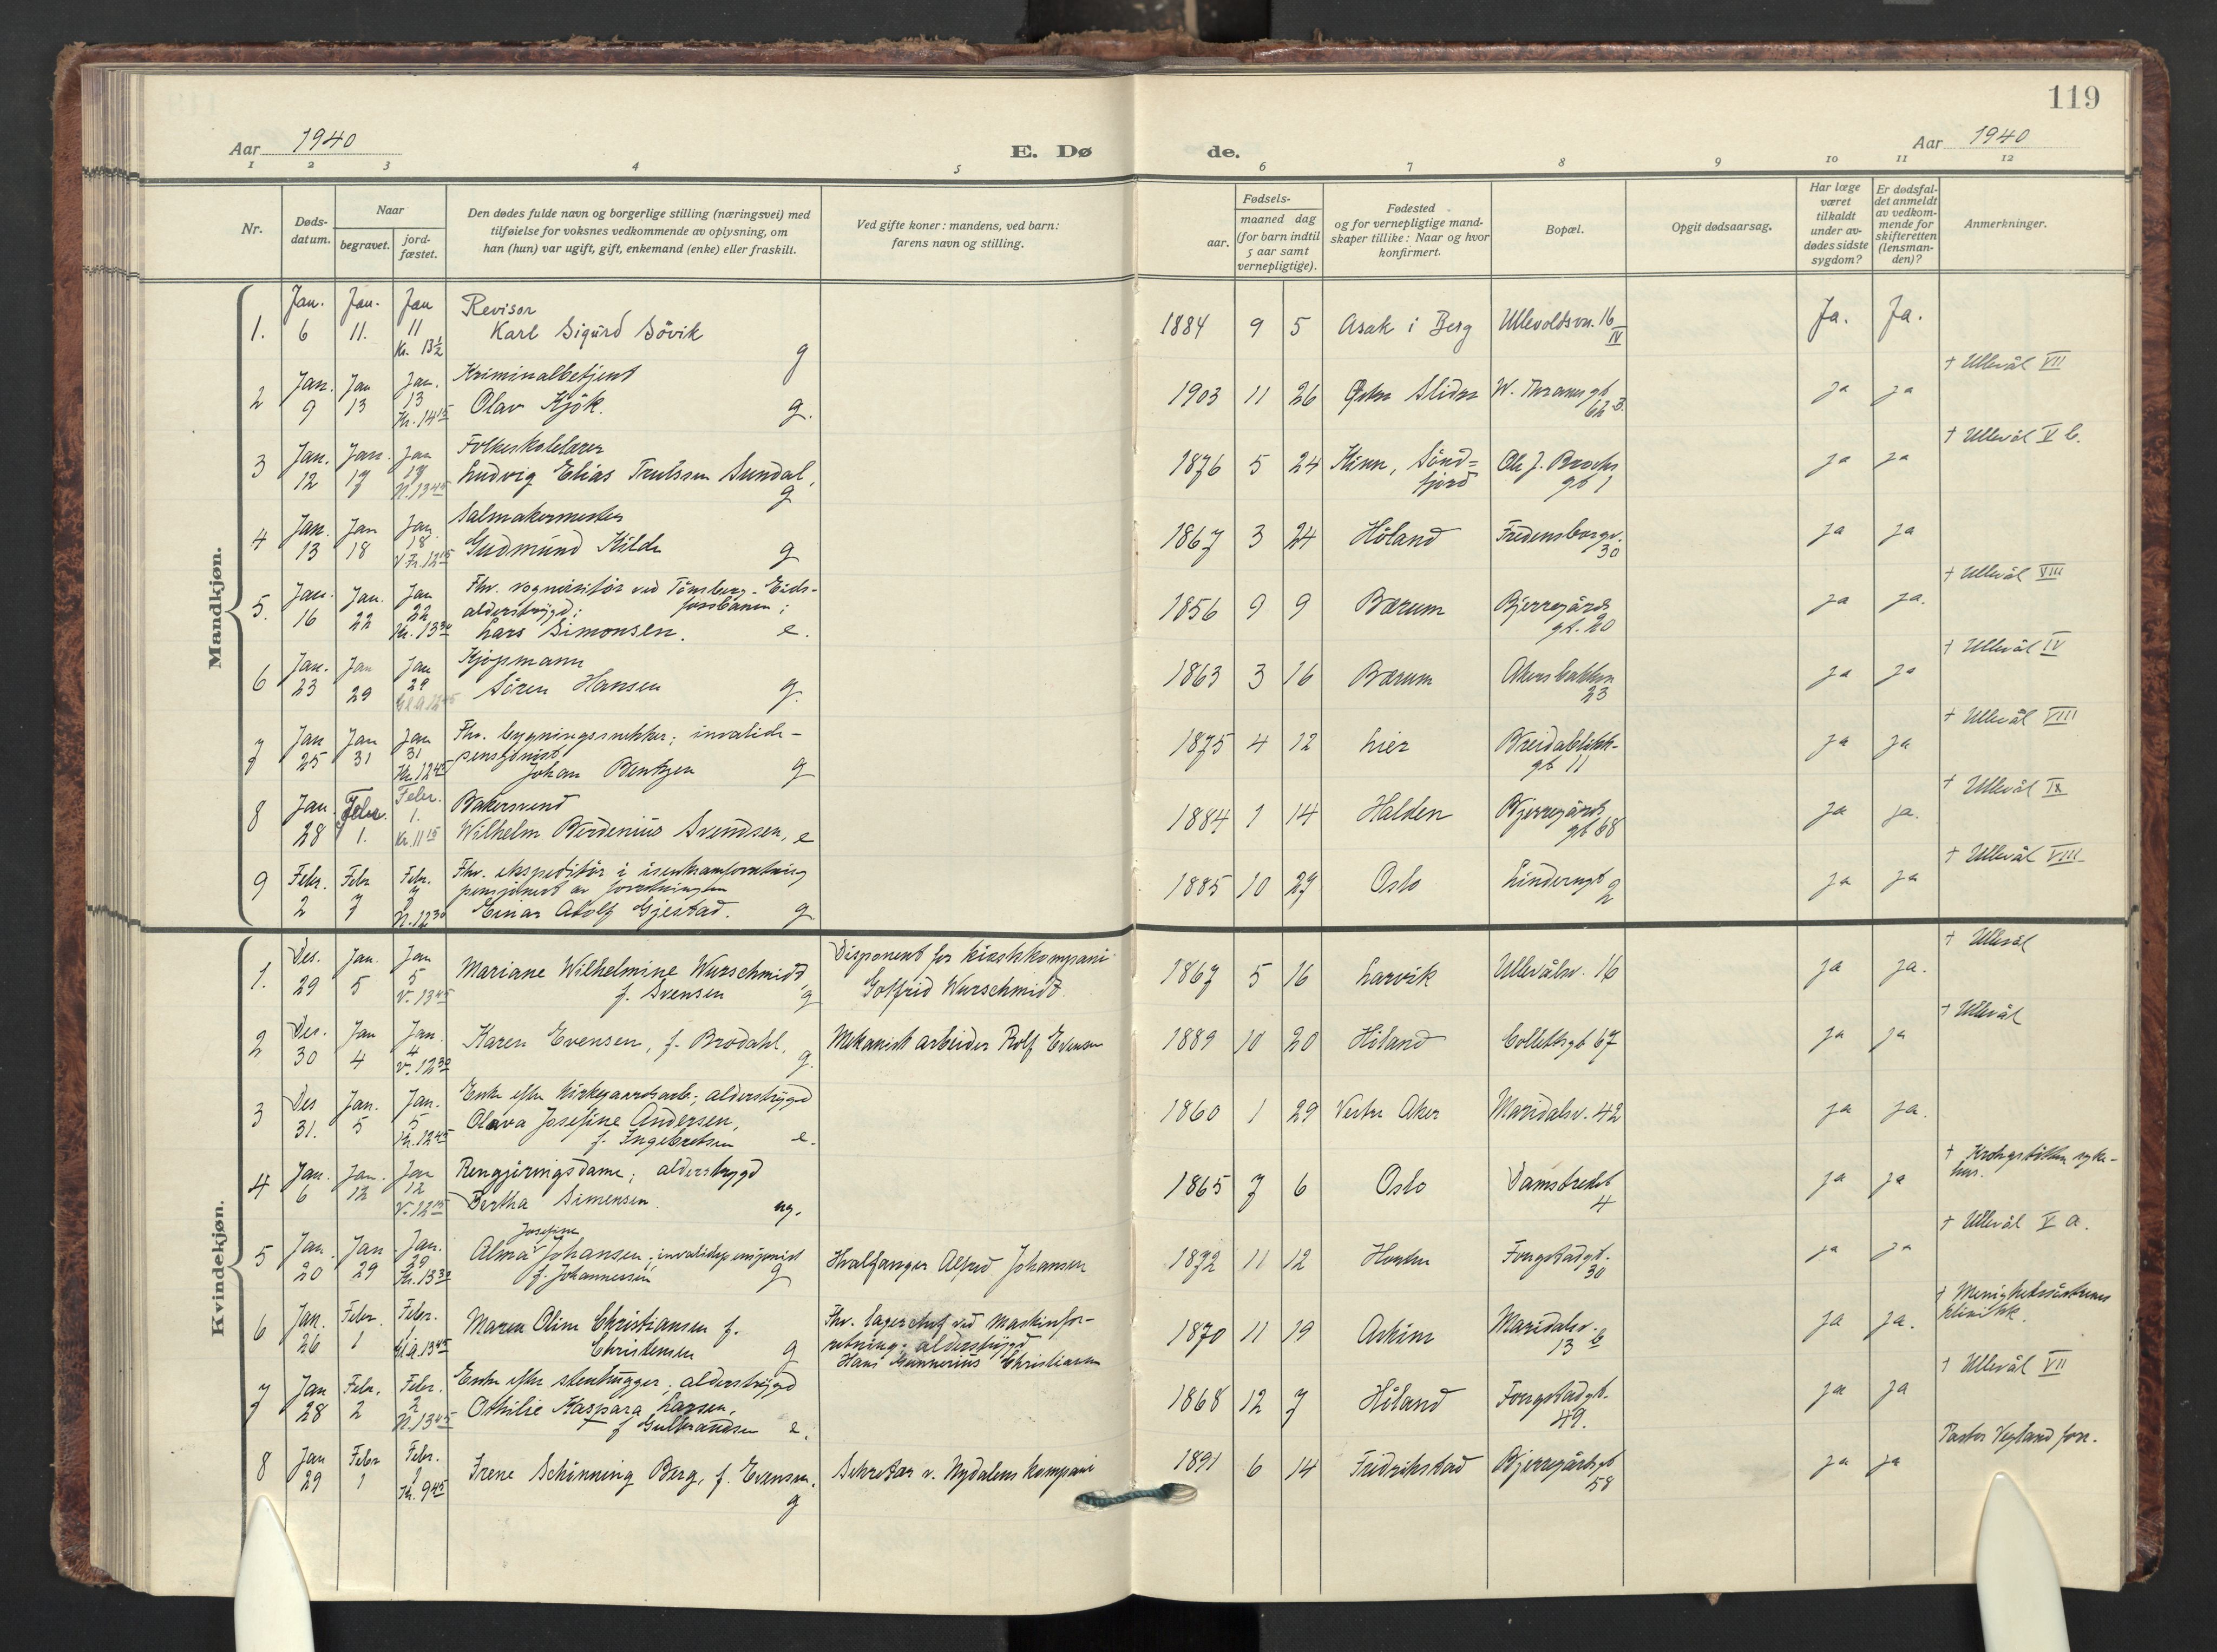 119
Aar 1940
E. Dø
de.
Aar 1940
1 2 3 4 5 6 7 8 9 10 11 12
Nr.
Døds-
datum.
Naar
begravet.
jord-
fæstet.
Den dødes fulde navn og borgerlige stilling (næringsvei) med
tilføielse for voksnes vedkommende av oplysning, om
han (hun) var ugift, gift, enkemand (enke) eller fraskilt.
Ved gifte koner: mandens, ved barn:
farens navn og stilling.
Fødsels-
aar.
maaned dag
(for barn indtil
5 aar samt
vernepligtige).
Fødested
og for vernepligtige mand-
skaper tillike: Naar og hvor
konfirmert.
Bopæl.
Opgit dødsaarsag.
Har læge
været
tilkaldt
under av-
dødes sidste
sygdom?
Er dødsfal-
det anmeldt
av vedkom-
mende for
skifteretten
(lensman-
den)?
Anmerkninger.
Mandkjøn.
Jan. Jan. Jan Revisor
1. 6 11. 11 Karl Sigurd Søvik g 1884 9 5 Asak i Berg Ullevoldsvn. 16 IV Ja. Ja.
Kr. 13½
Jan. Jan Jan. Kriminalbetjent † Ullevål VII
2 9 13 13 Olav Kjøk. g. 1903 11 26 Østre Slidre W. Thranesgt 62 B ja ja
Kr. 14 15
Jan. Jan. Jan Folkeskolelærer † Ullevål V b.
3 12 17 17 Ludvig Elias Trulssen Sundal, g 1876 5 24 Kinn, Sønd=
fjord Ole J. Brochs
gt 1 ja ja
N. 13 45
Jan. Jan Jan. Salmakermester
4 13 18 18 Gudmund Kilde g 1867 3 24 Høland Fredensborgv.
30 ja ja
Jan. Jan. Jan Fhv. vognvisitør ved Tønsberg-Eids-
fossbanen; † Ullevål VIII
5. 16 22 22 alderstrygd; 1856 9 9 Bærum Bjerregårds
gt. 20 ja ja.
Kr. 13 30 Lars Simonsen. e.
Jan. Jan Jan Kjøpmann † Ullevål IV
6 23 29 29 Søren Hansen g. 1863 3 16 Bærum Akersbakken
23 ja ja
Jan Jan Jan Fhv. bygningssnekker; invalide- † Ullevål VIII
7 25 31 31 pensjonist 1875 4 12 Lier Breidablikk-
gt 11 ja ja
Kr. 12 45 Johan Bentzen g
Jan Febr. Febr. Bakersvend † Ullevål IX
8 28 1. 1. Wilhelm Berdenius Svendsen, e 1884 1 14 Halden Bjerregårds
gt 68 ja ja.
Kr. 11 15
Febr. Febr Febr. Fhv. ekspeditør i isenkramforretning † Ullevål VIII
9 2 7 7 pensjonert av forretningen 1885 10 27 Oslo 2 ja ja
N. 12 30 Einar Adolf Gjestad. g
Kvindekjøn.
Des. Jan. Jan Disponent for † Ullevål
1. 29 5 5 Mariane Wilhelmine Wurschmidt, 1867 5 16 Larvik Ullevålsv. 16 ja ja.
V. 13 45 f. Svensen g Gotfrid Wurschmidt
Des. Jan Jan. † Ullevål
2 30 4 4 Karen Evensen, f. Brodahl. g. Mekanisk arbeider Rolf Evensen 1889 10 20 Høland Collettsgt 67 ja ja
V. 12 30
Des Jan. Jan. Enke efter kirkegaardsarb.; alderstrygd
3 31. 5 5 Olava Josefine Andersen, 1860 1 29 Vestre Aker Maridalsv. 42 ja ja.
Kr. 12 45 f. Ingebretsen e.
Jan. Jan. Jan Rengjøringsdame; alderstrygd † Krohgstøtten syke-
hus.
4 6 12 12 Bertha Simensen. ug. 1865 7 6 Oslo Damstredet
4 ja ja
V. 12 15
Josefine † Ullevål V a.
Jan Jan Jan.
5 20 29 29 Alma Johansen; invalidepensjonist Hvalfanger Alfred Johansen 1872 11 12 Horten Fougstadgt.
30 ja ja
Kr. 13 30 f. Johannessen g
Jan. Febr. Febr. Fhv. lagerchef ved Maskinfor- † Menighetssøstrenes
klinikk.
6 26 1 1 Maren Oline Christiansen f. retning; alderstrygd 1870 11 19 Askim Maridalsv.
13 b ja ja.
Gl. A. 13 45 Christensen g Hans Gunnerius Christiansen
Jan Febr. Febr. Enke efter stenhugger; alderstrygd † Ullevål VII
7 28 2 2 Othilie Kaspara Larsen, 1868 12 7 Høland Fougstadgt.
49. ja ja
N. 13 45 f Gulbrandsen e.
Jan Febr Febr. Pastor Vegland forr.
8 29 1 1 Irene Schinning Berg, f. Evensen. g Sekretær v. Nydalens Kompani 1891 6 14 Fredrikstad Bjerregårdsgt
58 ja ja
Kr. 9 45